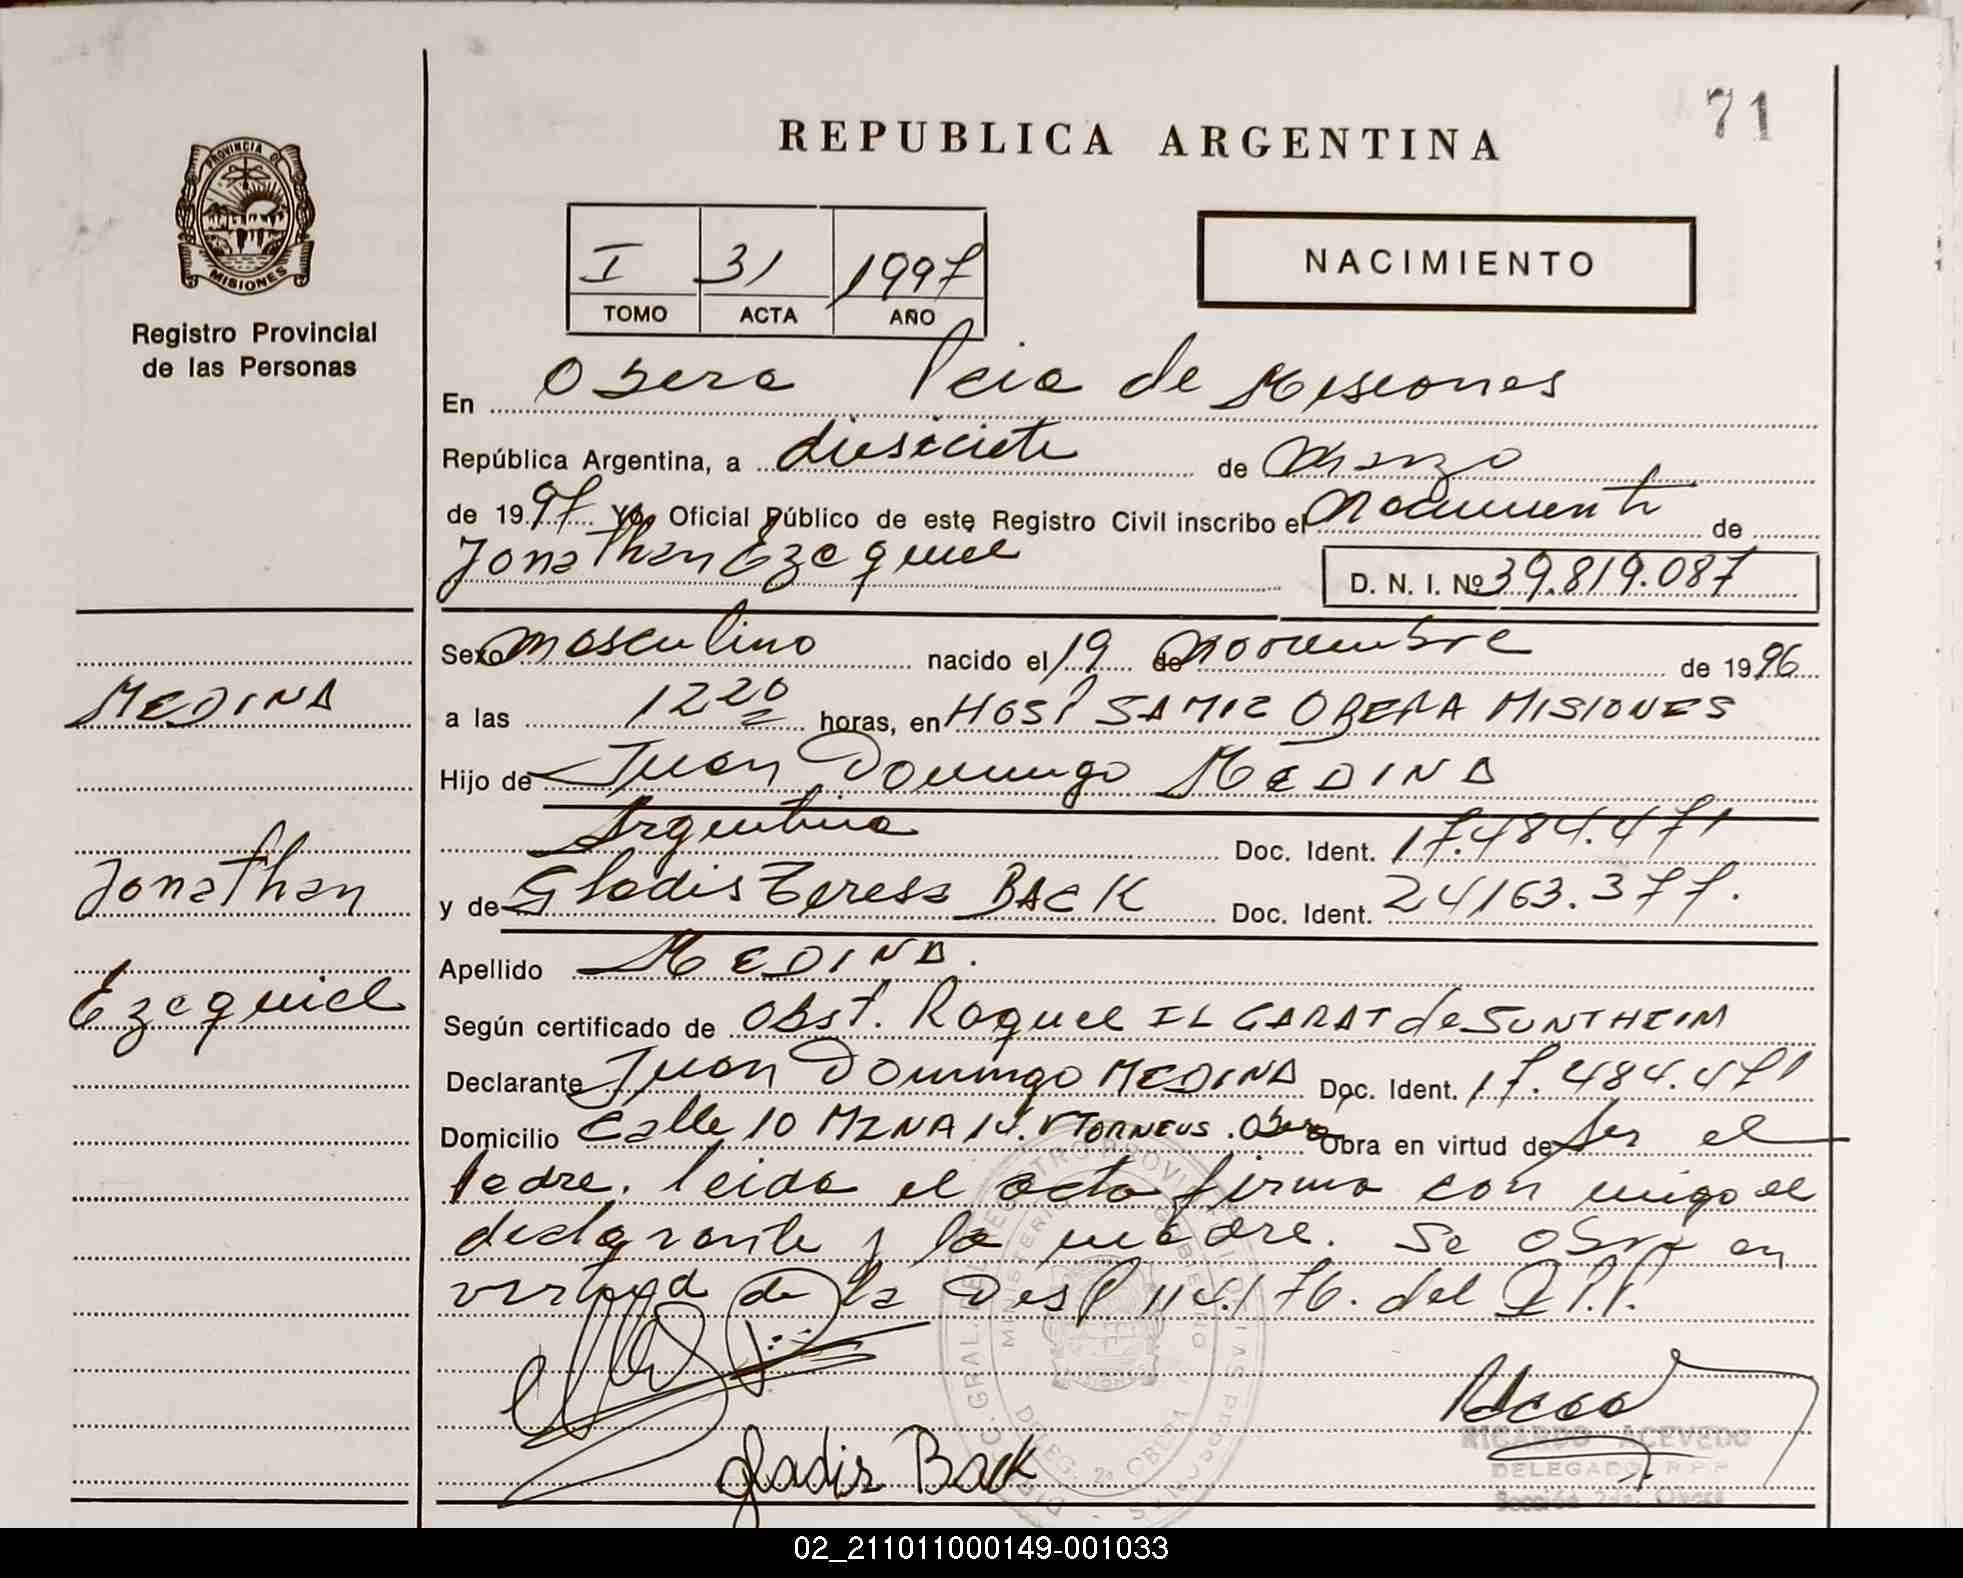 71
REPUBLICA ARGENTINA
PROVINCIA DE
MISIONES
Registro Provincial
de las Personas
I 31 1997
TOMO ACTA AÑO
NACIMIENTO
En Obera Pcia de Misiones
República Argentina, a diesiciete de Marzo
de 1997 Yo, Oficial Público de este Registro Civil inscribo el Nacimiento de
Jonathan Ezequiel D. N. I. Nº 39.819.087
Sexo Masculino nacido el 19 de Noviembre de 1996
a las 12 20 horas, en HOSP SAMIC OBERA MISIONES
Hijo de Juan Domingo MEDINA
Argentina Doc. Ident. 17.484.471
y de Gladis Teresa BACK Doc. Ident. 24163.377.
Apellido MEDINA.
Según certificado de Obst. Raquel ILGARAT de SUNTHEIM
Declarante Juan Domingo MEDINA Doc. Ident. 17.484.471
Domicilio Calle 10 MZNA 14. Obera Obra en virtud de Ser el
Padre. leida el acta firma con migo el
declarante y la madre. Se obra en
virtud de la Disp 114/76. del R.P.P.
MEDINA
Jonathan
Ezequiel
Gladis Back
RICARDO ACEVEDO
DELEGADO R P P
Sección 2da. Obera
02_211011000149-001033